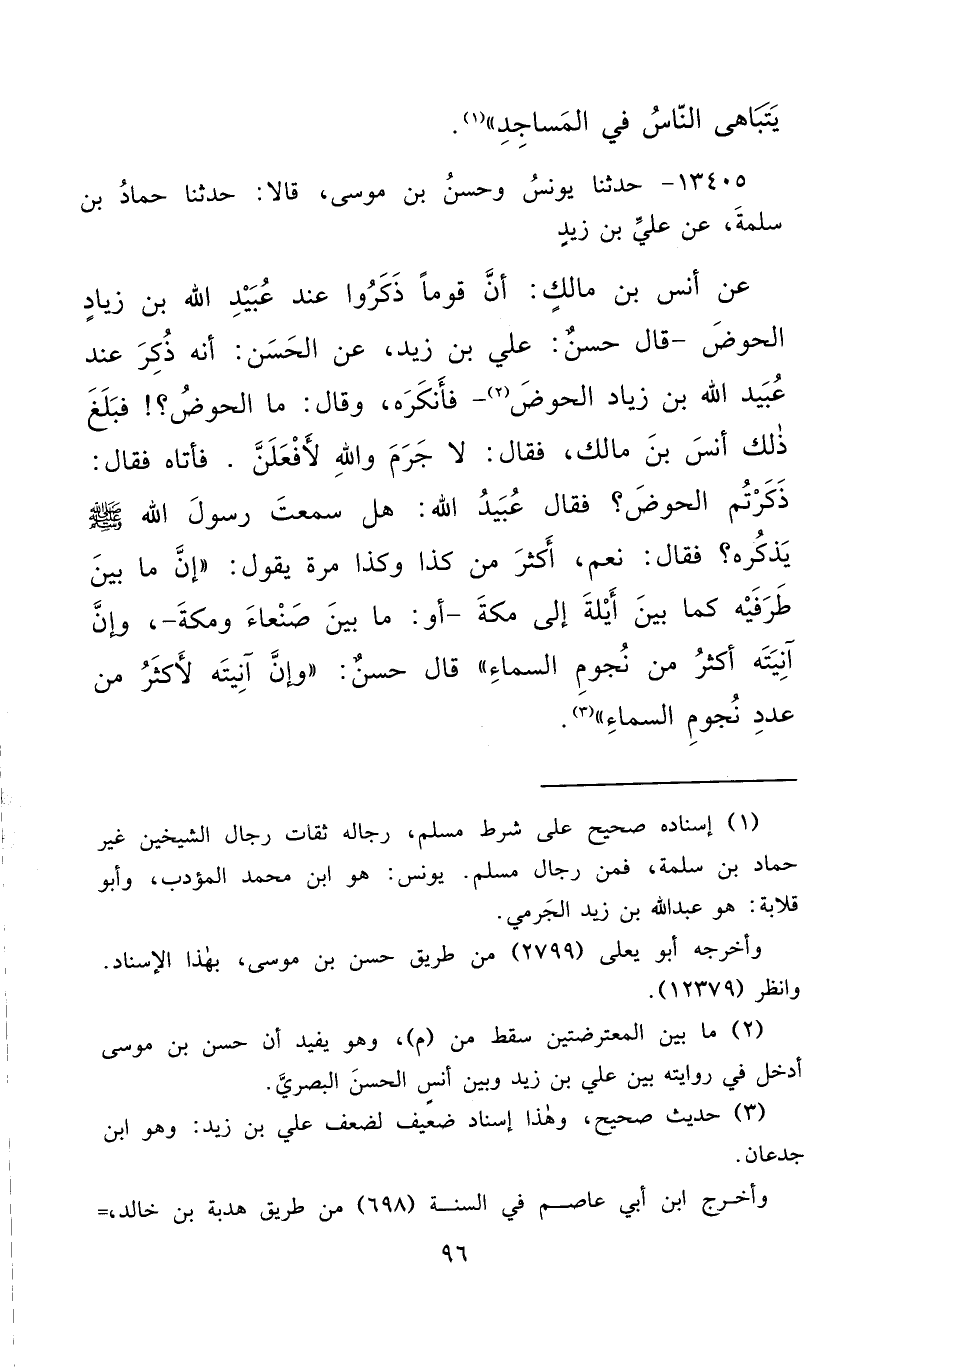 يَتَبَاهى النّاسُ في المَساجِدِ»(١).
١٣٤٠٥- حدثنا يونسُ وحسنُ بن موسى، قالا: حدثنا حمادُ بن
سلمةَ، عن عليِّ بن زيدٍ
عن أنس بن مالكٍ: أنَّ قوماً ذَكَرُوا عند عُبَيْدِ الله بن زيادٍ
الحوضَ -قال حسنٌ: علي بن زيد، عن الحَسَن: أنه ذُكِرَ عند
عُبَيد الله بن زياد الحوضَ(٢)- فأَنكَرَه، وقال: ما الحوضُ؟! فبَلَغَ
ذٰلك أنسَ بنَ مالك، فقال: لا جَرَمَ واللهِ لأَفْعَلَنَّ . فأتاه فقال:
ذَكَرْتُم الحوضَ؟ فقال عُبَيدُ الله: هل سمعتَ رسولَ الله ﷺ
يَذكُره؟ فقال: نعم، أَكثرَ من كذا وكذا مرة يقول: «إنَّ ما بينَ
طَرَفَيْه كما بينَ أَيْلةَ إلى مكةَ -أو: ما بينَ صَنْعاءَ ومكةَ-، وإنَّ
آنِيَتَه أكثرُ من نُجومِ السماءِ» قال حسنٌ: «وإنَّ آنِيتَه لأَكثَرُ من
عددِ نُجومِ السماءِ»(٣).
(١) إسناده صحيح على شرط مسلم، رجاله ثقات رجال الشيخين غير
حماد بن سلمة، فمن رجال مسلم. يونس: هو ابن محمد المؤدب، وأبو
قلابة: هو عبدالله بن زيد الجَرمي.
وأخرجه أبو يعلى (٢٧٩٩) من طريق حسن بن موسى، بهٰذا الإسناد.
وانظر (١٢٣٧٩).
(٢) ما بين المعترضتين سقط من (م)، وهو يفيد أن حسن بن موسى
أدخل في روايته بين علي بن زيد وبين أنسٍ الحسنَ البصريَّ.
(٣) حديث صحيح، وهٰذا إسناد ضعيف لضعف علي بن زيد: وهو ابن
جدعان.
وأخرج ابن أبي عاصم في السنة (٦٩٨) من طريق هدبة بن خالد،=
٩٦